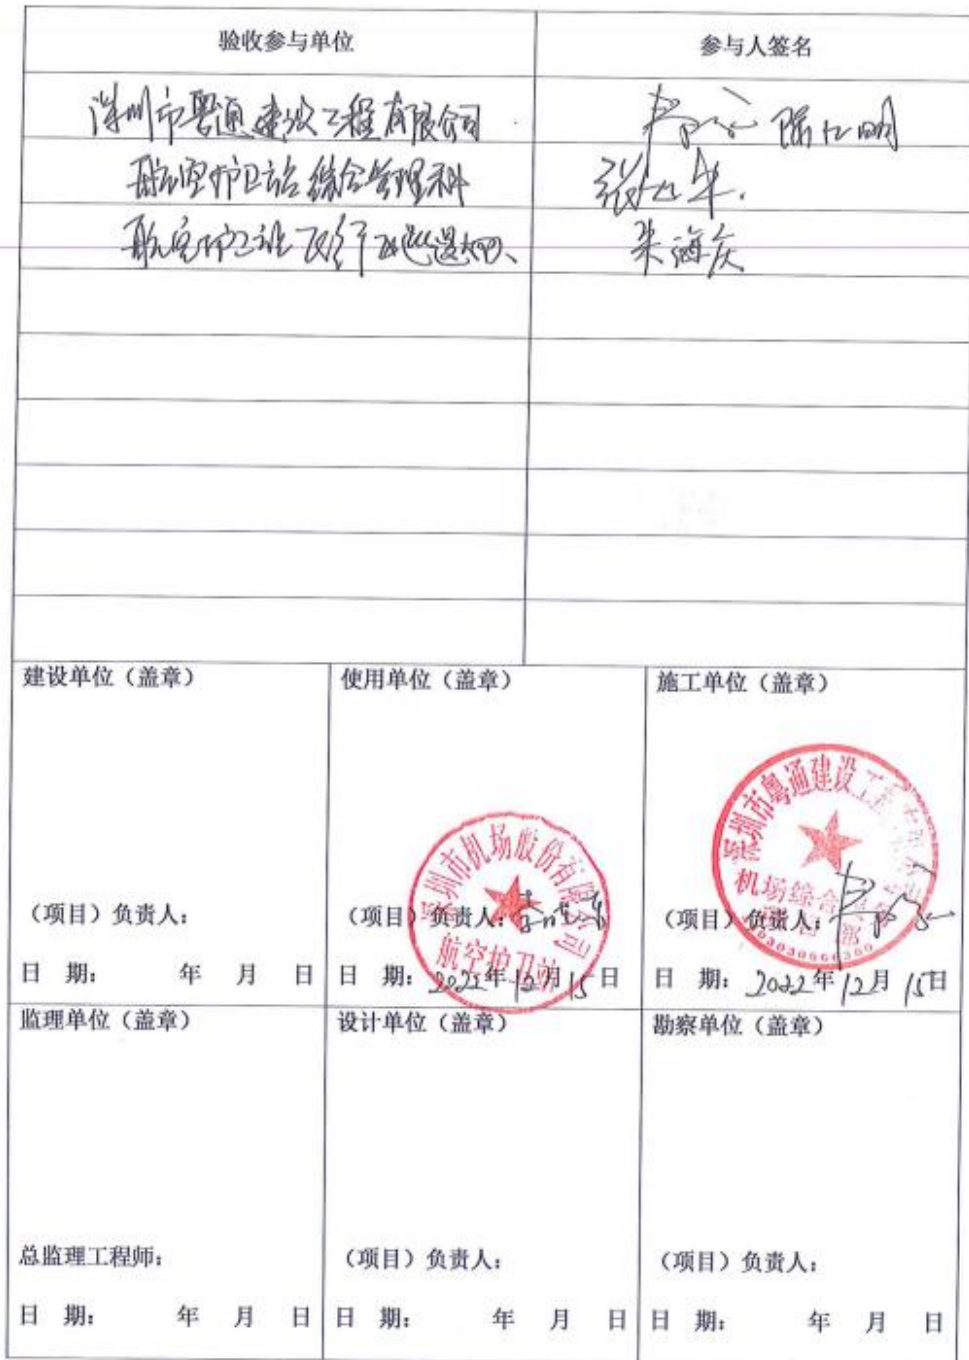 验收参与单位 参与人签名
深圳市粤通建设工程有限公司 陈仁明
航空护卫站综合管理科 张
航空护卫站 朱海庆
建设单位（盖章） 使用单位（盖章） 施工单位（盖章）
深圳市机场股份有限公司
航空护卫站
深圳市粤通建设工程有限公司
机场综合
（项目）负责人： （项目）负责人： （项目）负责人：
日 期： 年 月 日 日 期：2022年12月15日 日 期：2022年12月15日
监理单位（盖章） 设计单位（盖章） 勘察单位（盖章）
总监理工程师： （项目）负责人： （项目）负责人：
日 期： 年 月 日 日 期： 年 月 日 日 期： 年 月 日